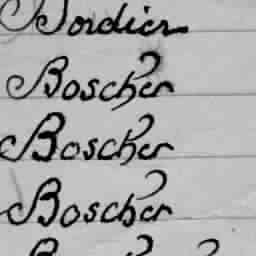 Bordier
Boscher
Boscher
Boscher